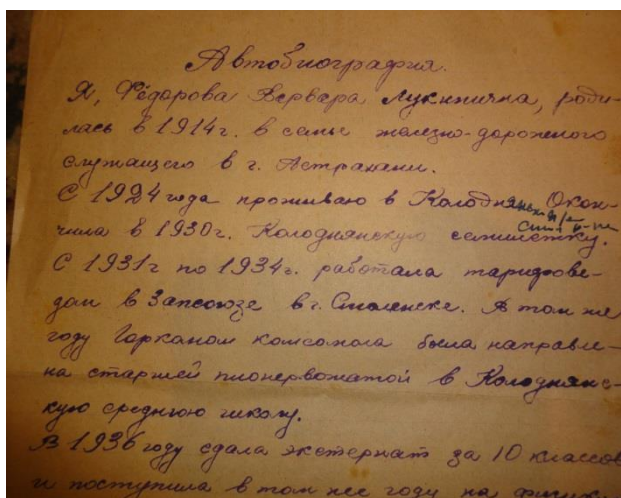 Автобиография.
Я, Фёдорова Варвара Лукинична, роди-
лась в 1914 г. в семье железно-дорожного
служащего в г. Астрахани.
С 1924 года проживаю в Колодня Окон-
чила в 1930 г. Колоднянскую семилетку.
С 1931 г по 1934 г. работала тарифове-
дом в Запсоюзе в г. Смоленске. В том же
году Горкомом комсомола была направле-
на старшей пионервожатой в Колоднянс-
кую среднюю школу.
В 1936 году сдала экстернат за 10 классов
и поступила в том же году на физик